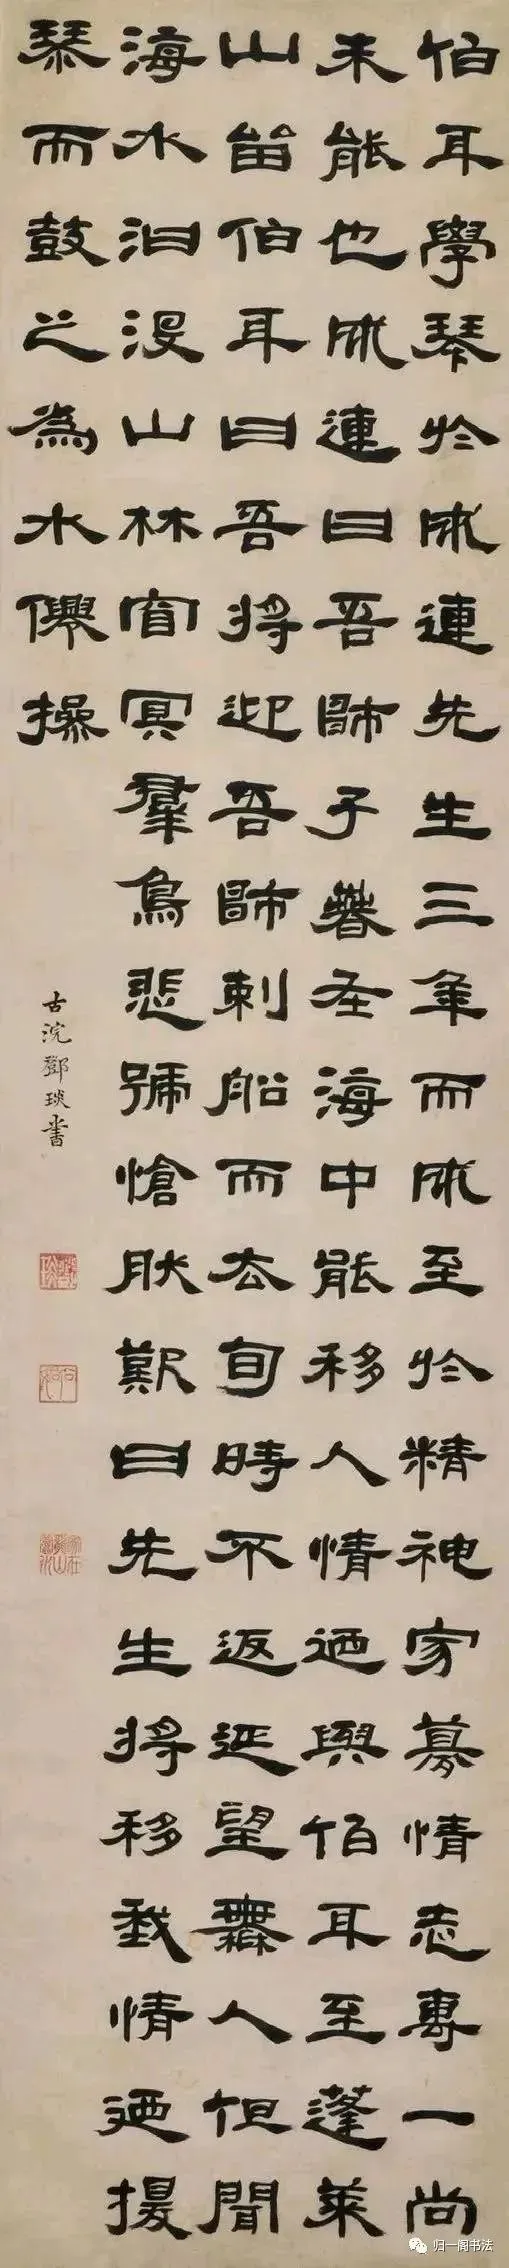 伯耳學琴於成連先生三年而成至於精神家募情志專一尚
未能也成連曰吾師子舂在海中能移人情迺與伯耳至蓬萊
山留伯耳曰吾將迎吾師刺船而去旬時不返延望無人但聞
海水汩沒山林窅冥羣鳥悲號愴然歎曰先生將移我情迺援
琴而鼓之為水僊操
古浣鄧琰書
家在龍山鳳水
归一阁书法